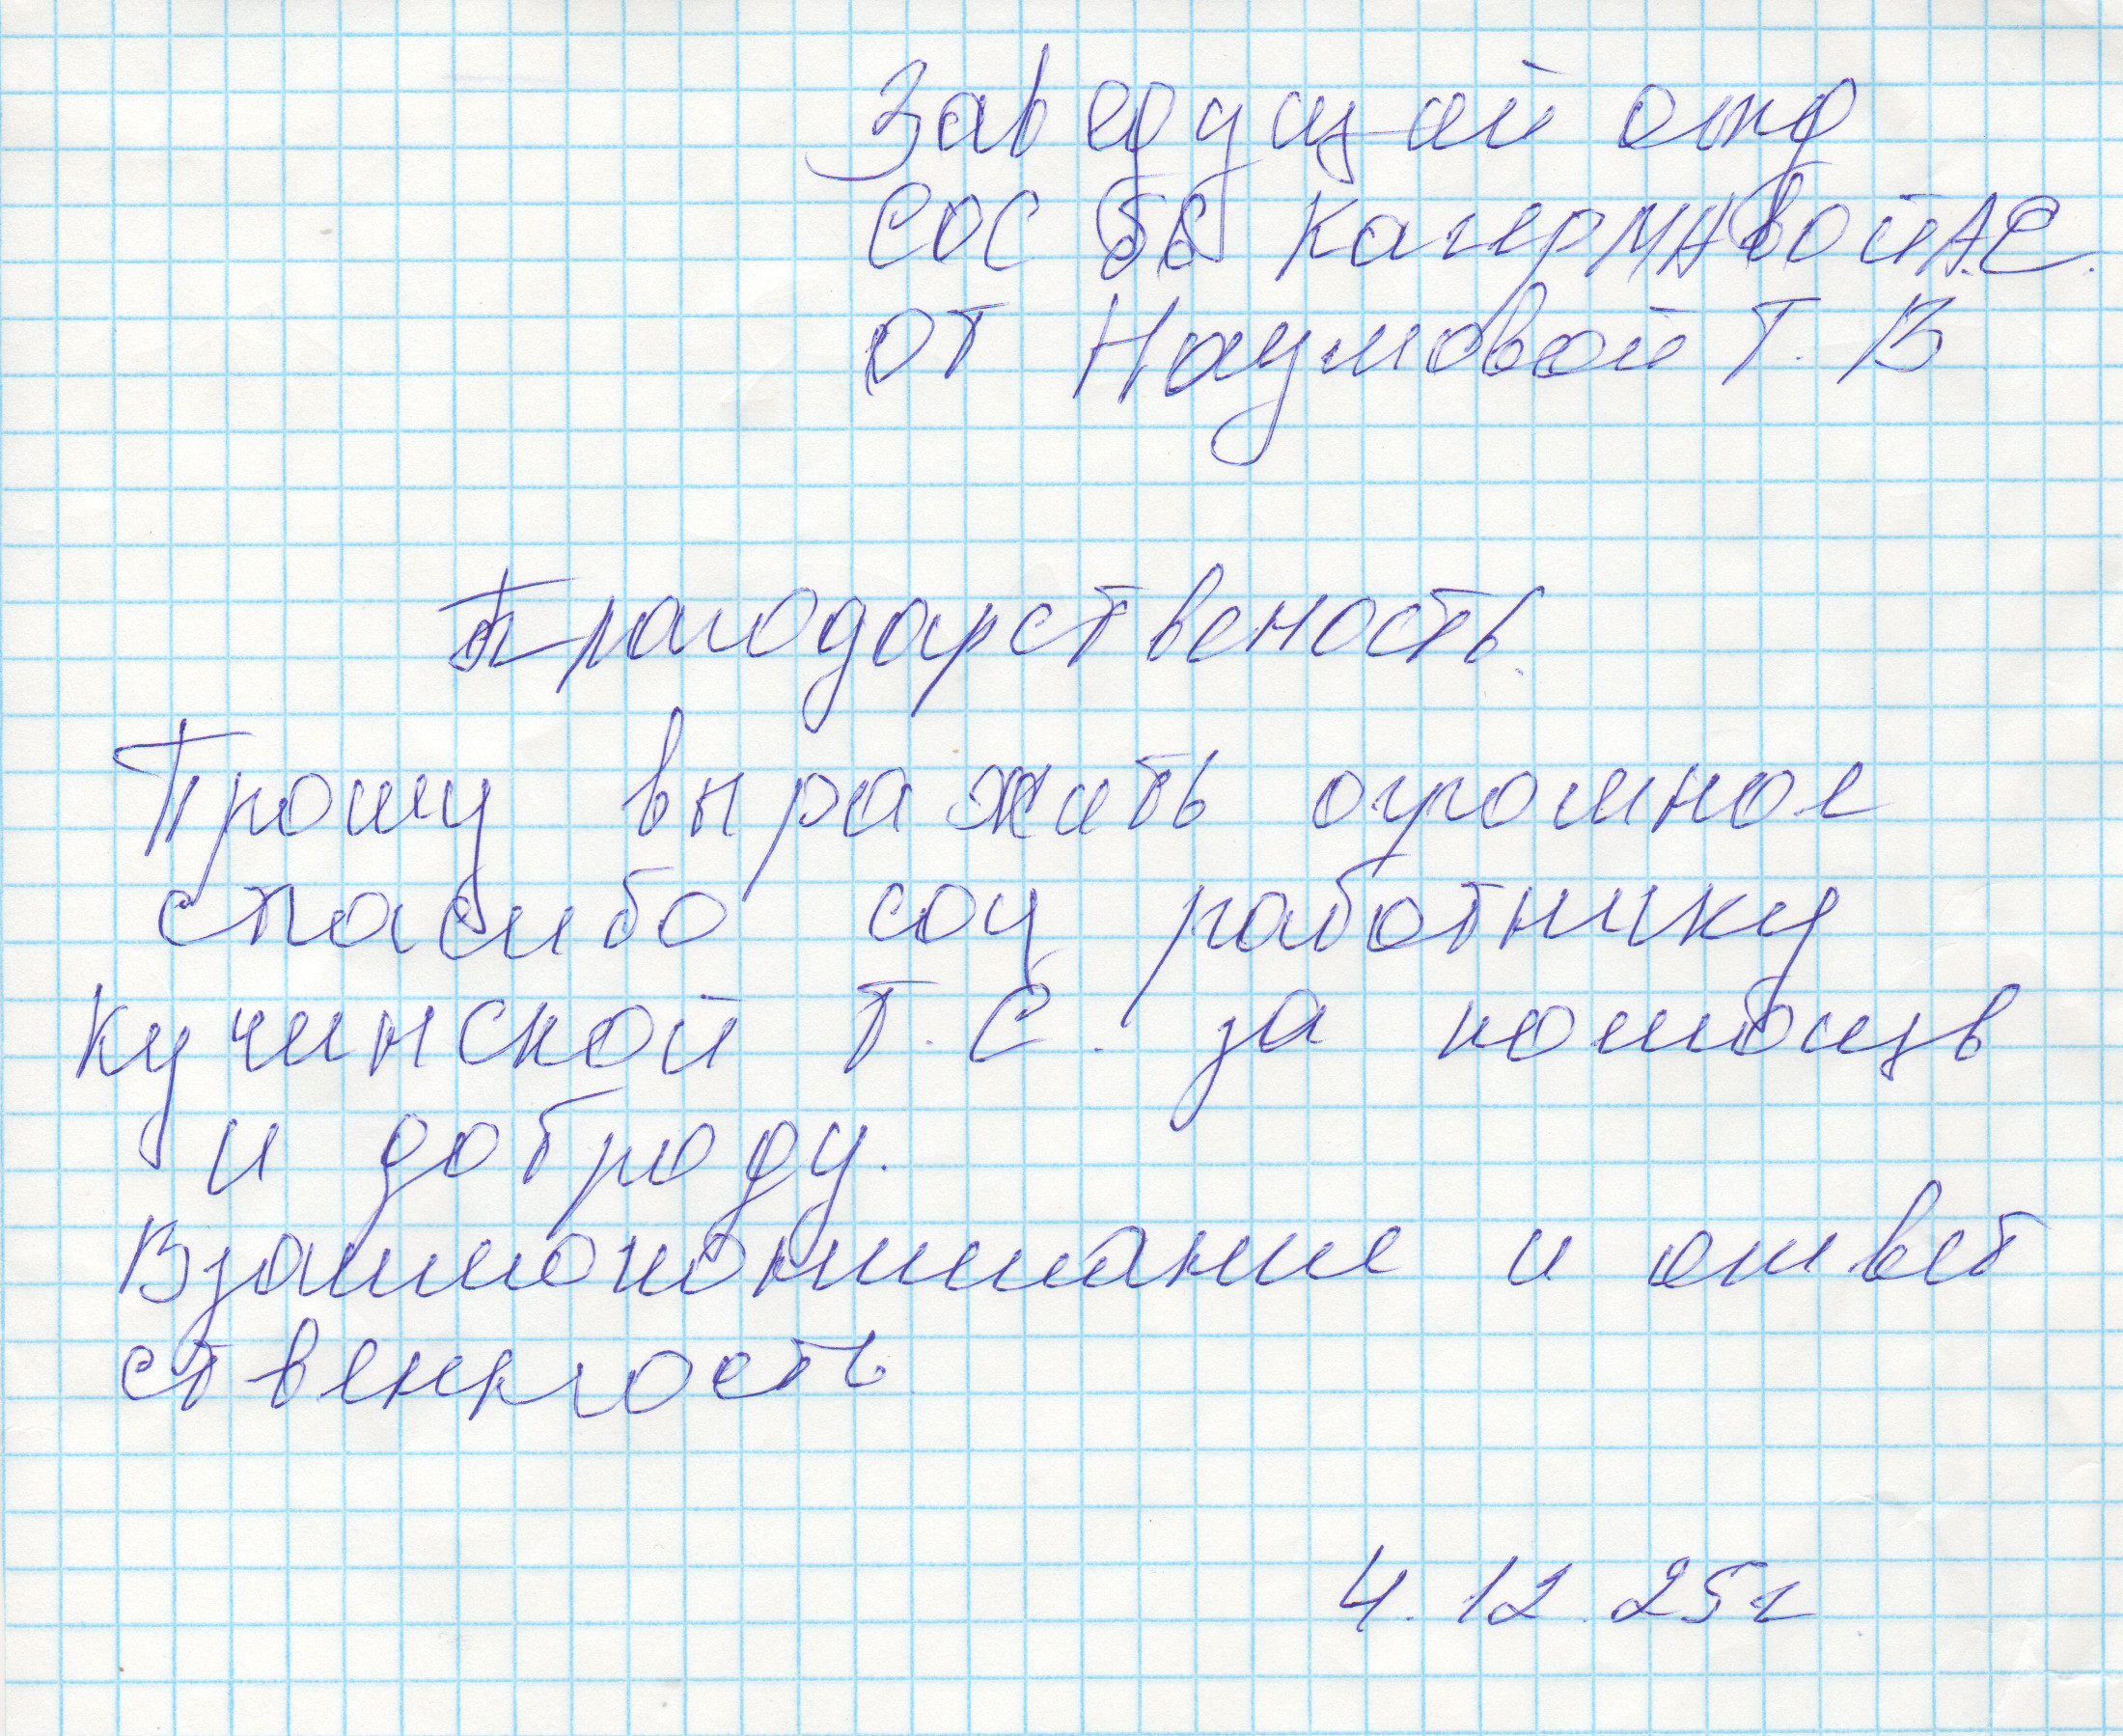 Заведущай отд
СОС ББ КагермАвойА.С.
от Наумовой Т. В
Благодарственость.
Прошу выражить огромное
спасибо соц работнику
Кучинской Т. С. за помощь
и доброду.
Взаимопонимание и ответ
ственность
4. 12. 25г